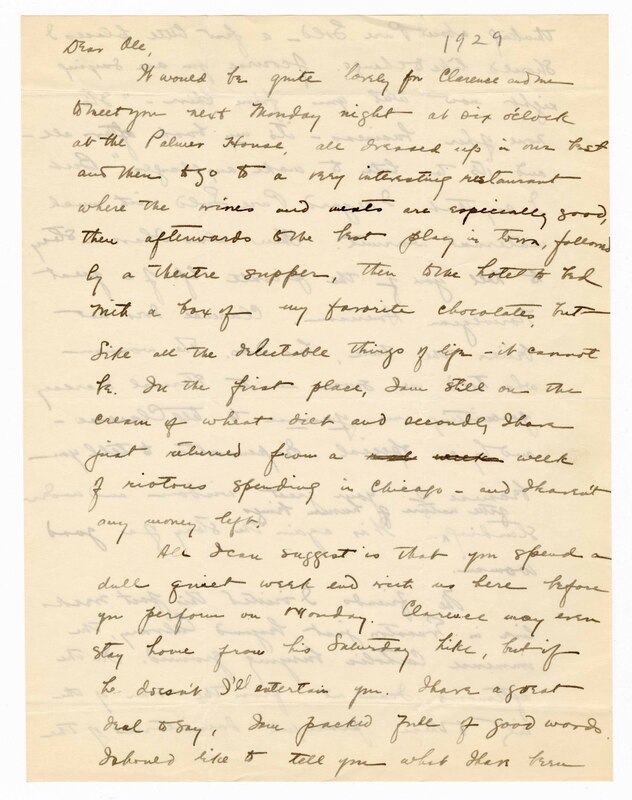 Dear Ole,
1929
It would be quite lovely for Clarence and me
to meet you next Monday night at six o'clock
at the Palmer House, all dressed up in our best
and then to go to a very interesting restaurant
where the wines and meats are especially good,
then afterwards to the best play in town, followed
by a theatre supper, then to the hotel to bed
with a box of my favorite chocolates, but
like all the delectable things of life - it cannot
be. In the first place, I am still on the
cream of wheat diet and secondly, I have
just returned from a week
of riotous spending in Chicago - and I haven't
any money left.
All I can suggest is that you spend a
dull quiet week end with us here before
you perform on Monday. Clarence may even
stay home from his Saturday hike, but if
he doesn't I'll entertain you. I have a great
deal to say, I am packed full of good words
I should like to tell you what I have been